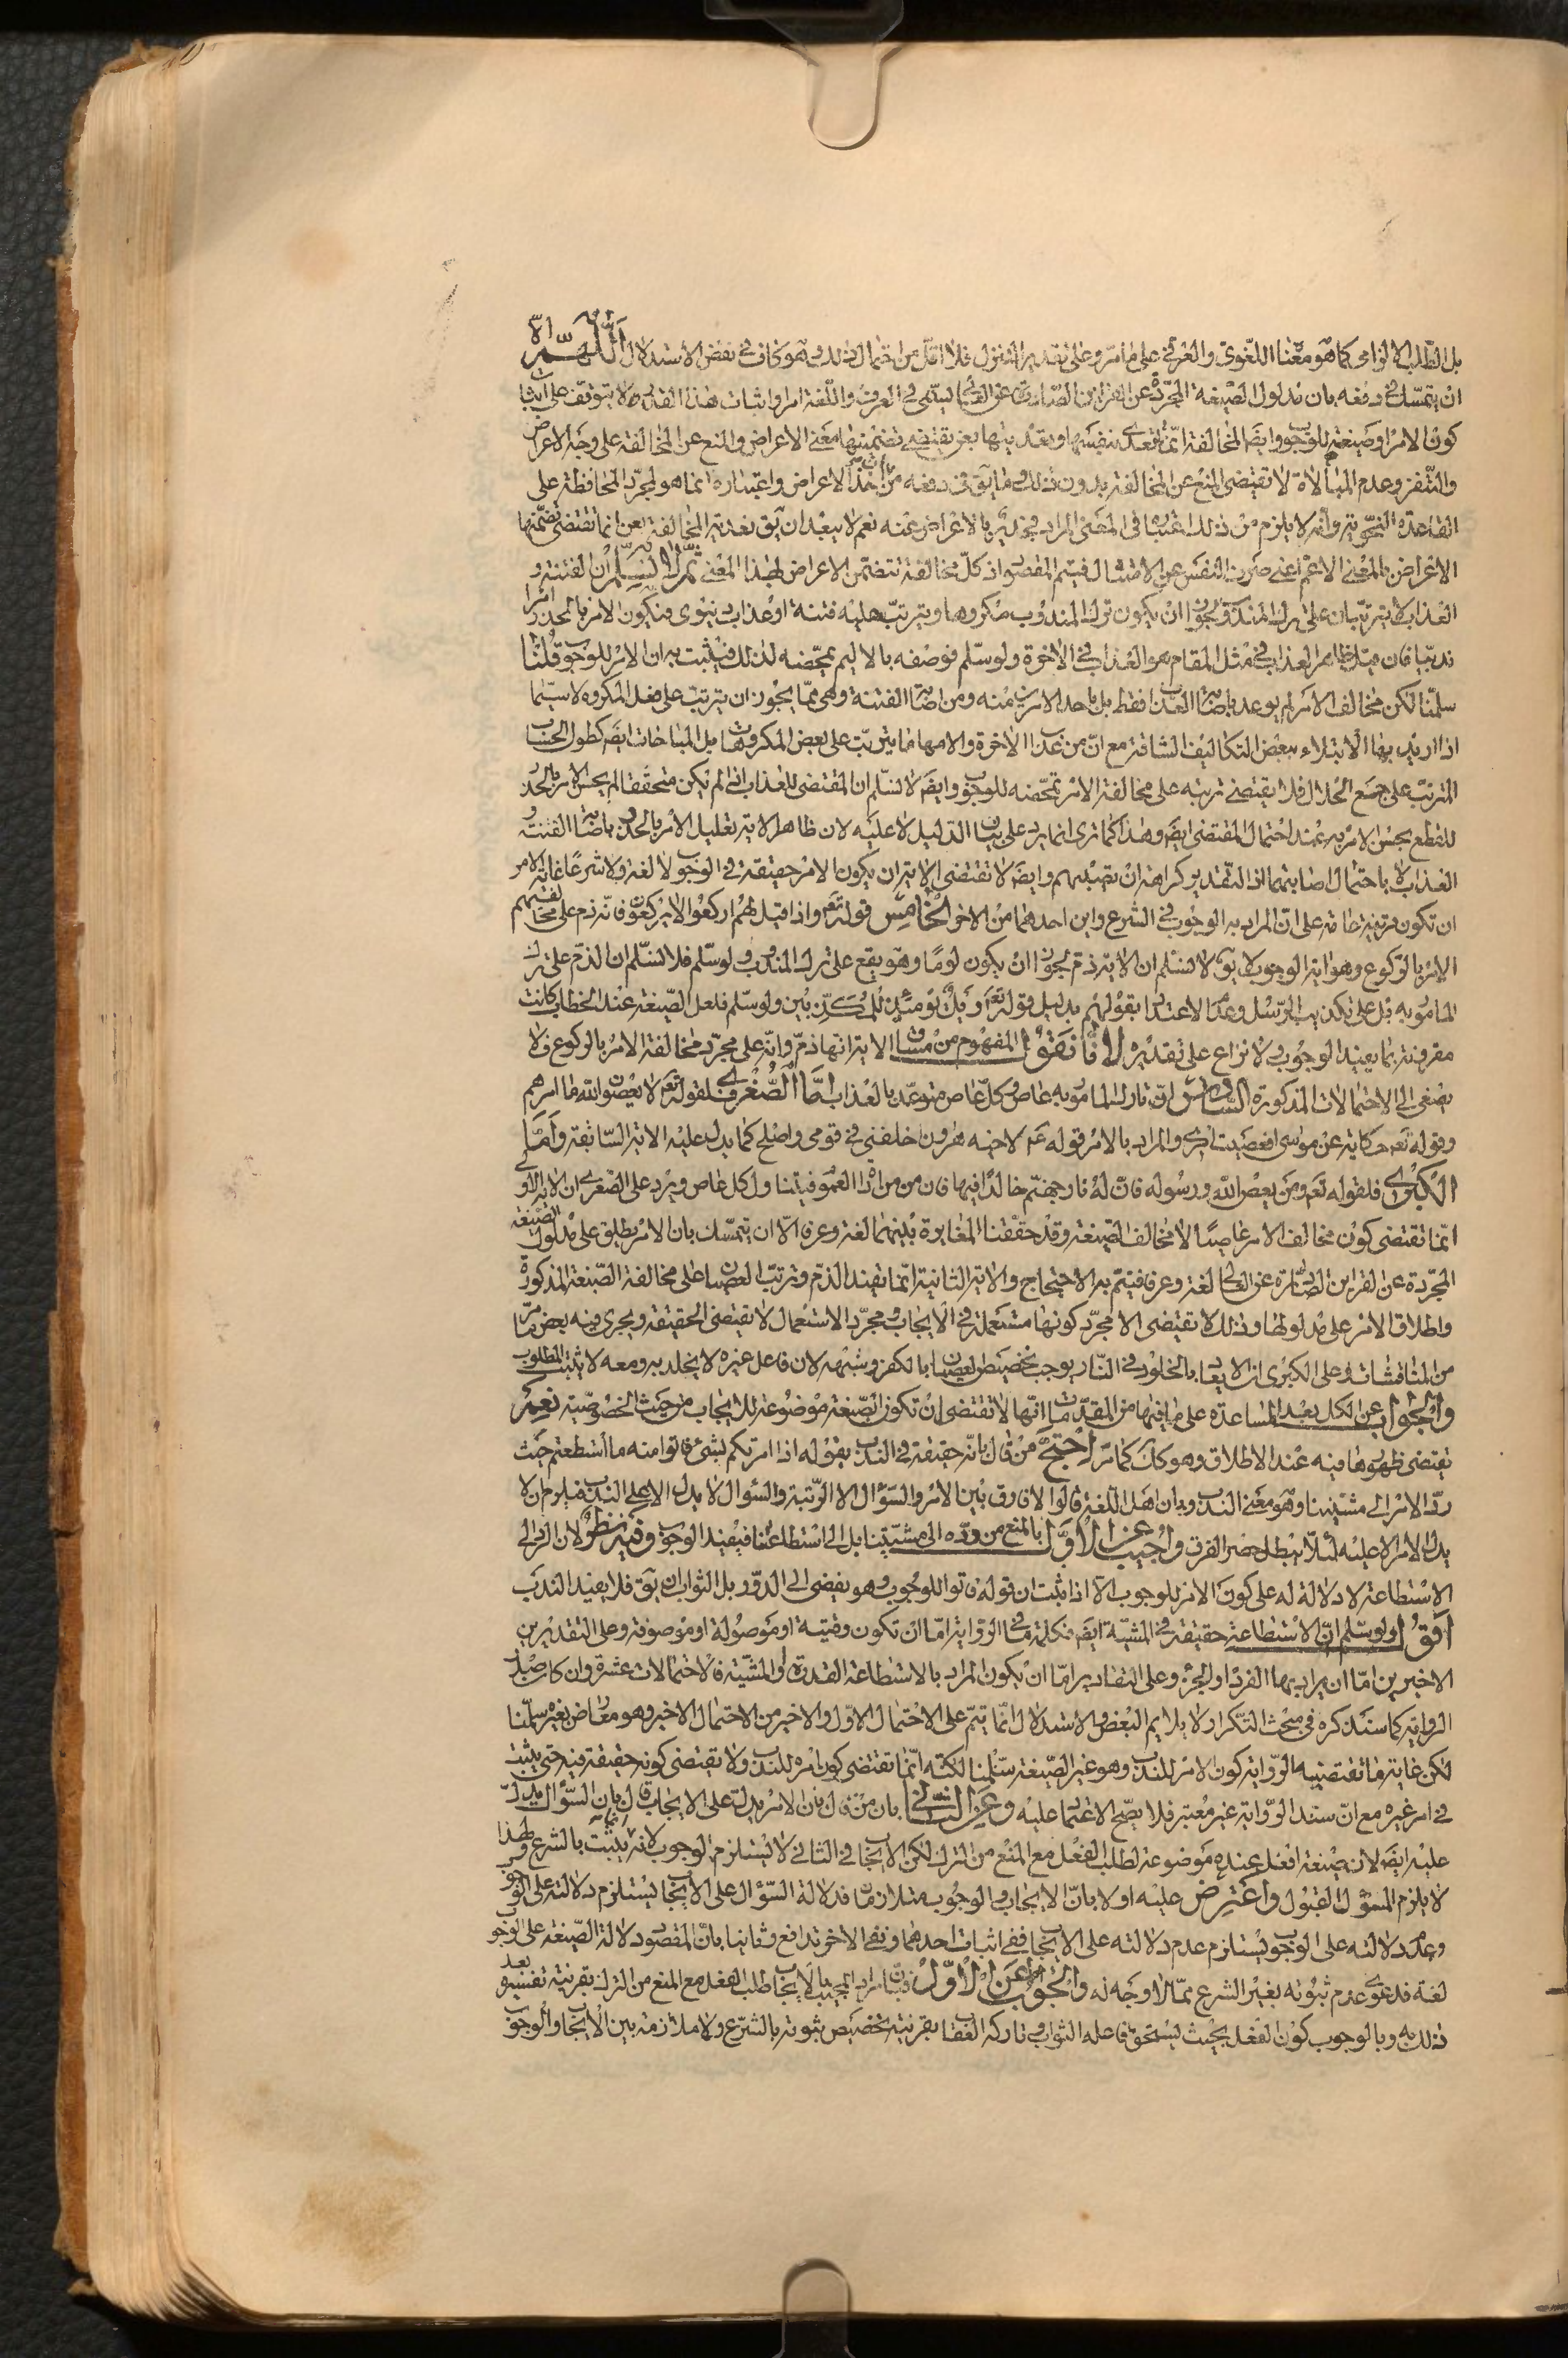 بل الطلب الالزامی كما هو معناه اللغوی والعرفی علی ما مر وعلی تقدیر التنزل فلا اقل من احتمال ذلك وهو كاف فی نقض الاستدلال اللهم الا
ان یتمسك فی دفعه بان مدلول الصیغة المجردة عن القراین الصارفة عن الطلب یسمی فی العرف واللغة امرا واثبات هذا القدر لا یتوقف علی اثبات
كون الامر او صیغته للوجوب وایضا المخالفة انما تتعدی بنفسها وتعدیتها بعن یقتضی تضمینها معنی الاعراض والمنع عن المخالفة علی وجه الاعراض
والتنفر وعدم المبالاة لا تقتضی المنع عن المخالفة بدون ذلك وما یق فی دفعه من ان اخذ الاعراض واعتباره انما هو لمجرد المحافظة علی
القاعدة النحویة وانه لا یلزم من ذلك اعتباره فی المعنی المراد لیخرج بالاعراض عنه نعم لا یبعد ان یق تعدیة المخالفة بعن انما تقتضی تضمنها
الاعراض بالمعنی الاعم اعنی صرف النفس عن الامتثال فیتم المقصود اذ كل مخالفة تتضمن الاعراض لهذا المعنی ثم لا نسلم ان الفتنة و
العذاب لا یترتبان علی ترك المندوب لجواز ان یكون ترك المندوب مكروها ویترتب علیه فتنة او عذاب دنیوی فیكون الامر بالحذر امرا
ندبیا فان قیل ظاهر العذاب فی مثل المقام هو العذاب فی الاخرة ولو سلم فوصفه بالالیم یمحضه لذلك فیثبت به ان الامر للوجوب قلنا
سلمنا لكن مخالف الامر لم یوعد باصابة العذاب فقط بل باحد الامرین منه ومن اصابة الفتنة وهی مما یجوز ان یترتب علی فعل المكروه لا سیما
اذا ارید بها الابتلاء ببعض التكالیف الشاقة مع ان من عذاب الاخرة والامها ما یترتب علی بعض المكروهات بل المباحات ایضا كطول الحساب
المترتب علی جمع الحلال فلا یقتضی ترتبه علی مخالفة الامر تمحضه للوجوب وایضا لا نسلم ان المقتضی للعذاب اذا لم یكن متحققا لم یحسن الامر بالحذر
للقطع بحسن الامر به عند احتمال المقتضی ایضا وهذا كما تری انما یرد علی بیان الدلیل لا علیه لان ظاهر الایة تعلیل الامر بالحذر باصابة الفتنة و
العذاب لا باحتمال اصابتهما اذ التقدیر كراهة ان تصیبهم وایضا لا تقتضی الایة ان یكون الامر حقیقة فی الوجوب لا لغة ولا شرعا غایة الامر
ان تكون قرینة خاصة علی ان المراد به الوجوب فی الشرع واین احدهما من الاخر الخامس قوله تعم واذا قیل لهم اركعوا لا یركعون فانه ذم علی مخالفتهم
الامر بالركوع وهو ایة الوجوب لا یق لا نسلم ان الایة ذم لجواز ان یكون لوما وهو یقع علی ترك المندوب ولو سلم فلا نسلم ان الذم علی ترك
المامور به بل علی تكذیب الرسل وعدم الاعتداد بقولهم بدلیل قوله تعم ویل یومئذ للمكذبین ولو سلم فلعل الصیغة عند الخطاب كانت
مقرونة بما یفید الوجوب ولا نزاع علی تقدیره لانا نقول المفهوم من مساق الایة انها ذم وانه علی مجرد مخالفة الامر بالركوع فلا
یصغی الی الاحتمالات المذكورة السادس ان تارك المامور به عاص وكل عاص متوعد بالعذاب اما الصغری فلقوله تعم لا یعصون الله ما امرهم
وقوله تعم حكایة عن موسی افعصیت امری والمراد بالامر قوله عم لاخیه هرون اخلفنی فی قومی واصلح كما یدل علیه الایة السابقة واما
الكبری فلقوله تعم ومن یعص الله ورسوله فان له نار جهنم خالدا فیها فان من من اداة العموم فیتناول كل عاص ویرد علی الصغری ان الایة الاولی
انما تقتضی كون مخالف الامر عاصیا لا مخالف الصیغة وقد حققنا المغایرة بینهما لغة وعرفا الا ان یتمسك بان الامر یطلق علی مدلول الصیغة
المجردة عن القراین الصارفة عن الطلب لغة وعرفا فیتم به الاحتجاج والایة الثانیة انما تفید الذم وترتب العصیان علی مخالفة الصیغة المذكورة
واطلاق الامر علی مدلولها وذلك لا تقتضی الا مجرد كونها مستعملة فی الایجاب ومجرد الاستعمال لا تقتضی الحقیقة ویجری فیه بعض ما مر
من المناقشات وعلی الكبری ان الایعاد بالخلود فی النار یوجب تخصیص العصیان بالكفر وشبهه لان فاعل غیره لا یخلد به ومعه لا یثبت المطلوب
والجواب عن الكل بعد المساعدة علی ما فیها من المقدمات انها لا تقتضی ان تكون الصیغة موضوعة للایجاب من حیث الخصوصیة نعم
تقتضی ظهورها فیه عند الاطلاق وهو كك كما مر احتج من قال بانه حقیقة فی الندب بقوله اذا امرتكم بشیء فاتوا منه ما استطعتم حیث
رد الامر الی مشیتنا وهو معنی الندب وبان اهل اللغة قالوا لا فارق بین الامر والسؤال الا الرتبة والسؤال لا یدل الا علی الندب فیلزم ان لا
یدل الامر الا علیه لئلا یبطل حصر الفرق واجیب عن الاول بالمنع من رده الی مشیتنا بل الی استطاعتنا فیفید الوجوب وفیه نظر لان الرد الی
الاستطاعة لا دلالة له علی كون الامر للوجوب الا اذا ثبت ان قوله فاتوا للوجوب وهو یفضی الی الدور بل الثواب ان یق فلا یفید الندب
اقول ولو سلم ان الاستطاعة حقیقة فی المشیة ایضا فكلمة ما فی الروایة اما ان تكون وقتیة او موصولة او موصوفة وعلی التقدیرین
الاخیرین اما ان یراد بها الفرد او الجزء وعلی التقادیر اما ان یكون المراد بالاستطاعة القدرة او المشیة فالاحتمالات عشرة وان كان صدر
الروایة كما سنذكره فی مبحث التكرار لا یلایم البعض والاستدلال انما یتم علی الاحتمال الاول والاخیر من الاحتمال الاخیر وهو معارض بغیره سلمنا
لكن غایة ما تقتضیه الروایة كون الامر للندب وهو غیر الصیغة سلمنا لكنه انما تقتضی كون امره للندب ولا تقتضی كونه حقیقة فیه حتی یثبت
فی امر غیره مع ان سند الروایة غیر معتبر فلا یصح الاعتماد علیه وعن الثانی بان من قال بان الامر یدل علی الایجاب قال بان السؤال یدل
علیه ایضا لان صیغة افعل عنده موضوعة لطلب الفعل مع المنع من الترك لكن الایجاب فی الثانی لا یستلزم الوجوب لانه انما یثبت بالشرع ولهذا
لا یلزم المسؤل القبول واعترض علیه اولا بان الایجاب والوجوب متلازمان فدلالة السؤال علی الایجاب یستلزم دلالته علی الوجوب
وعدم دلالته علی الوجوب یستلزم عدم دلالته علی الایجاب ففی اثبات احدهما ونفی الاخر تدافع وثانیا بان المقصود دلالة الصیغة علی الوجوب
لغة فدعوی عدم ثبوته بغیر الشرع مما لا وجه له والجواب عن الاول ان مراد المجیب بالایجاب طلب الفعل مع المنع من الترك بقرینة تفسیره بعد
ذلك به وبالوجوب كون الفعل بحیث یستحق فاعله الثواب وتاركه العقاب بقرینة تخصیص ثبوته بالشرع ولا ملازمة بین الایجاب والوجوب